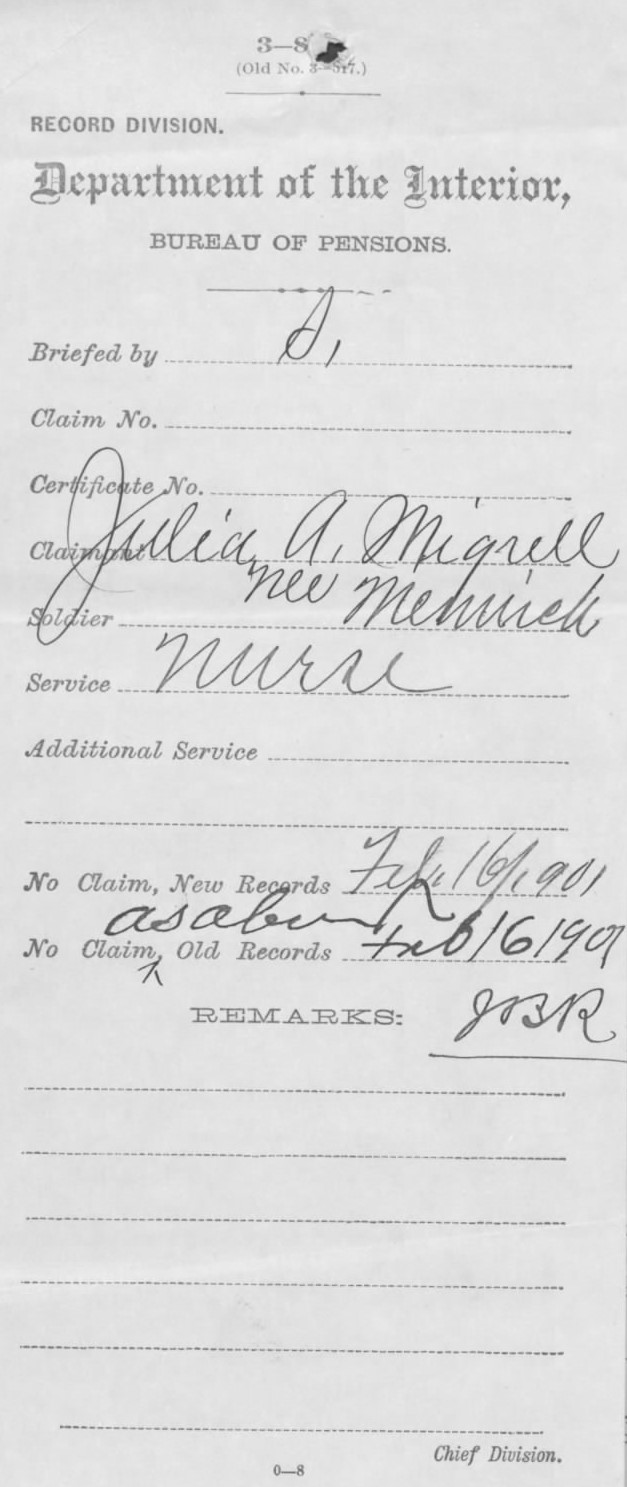 3—8
(Old No. 3—517.)
RECORD DIVISION.
Department of the Interior,
BUREAU OF PENSIONS.
Briefed by S,
Claim No.
Certificate No.
Claimant Julia A. Migrell
nee
Soldier
Service Nurse
Additional Service
No Claim, New Records Feb 16/1901
as above
No Claim, Old Records Feb 16 1901
REMARKS: JBR
Chief Division.
0—8